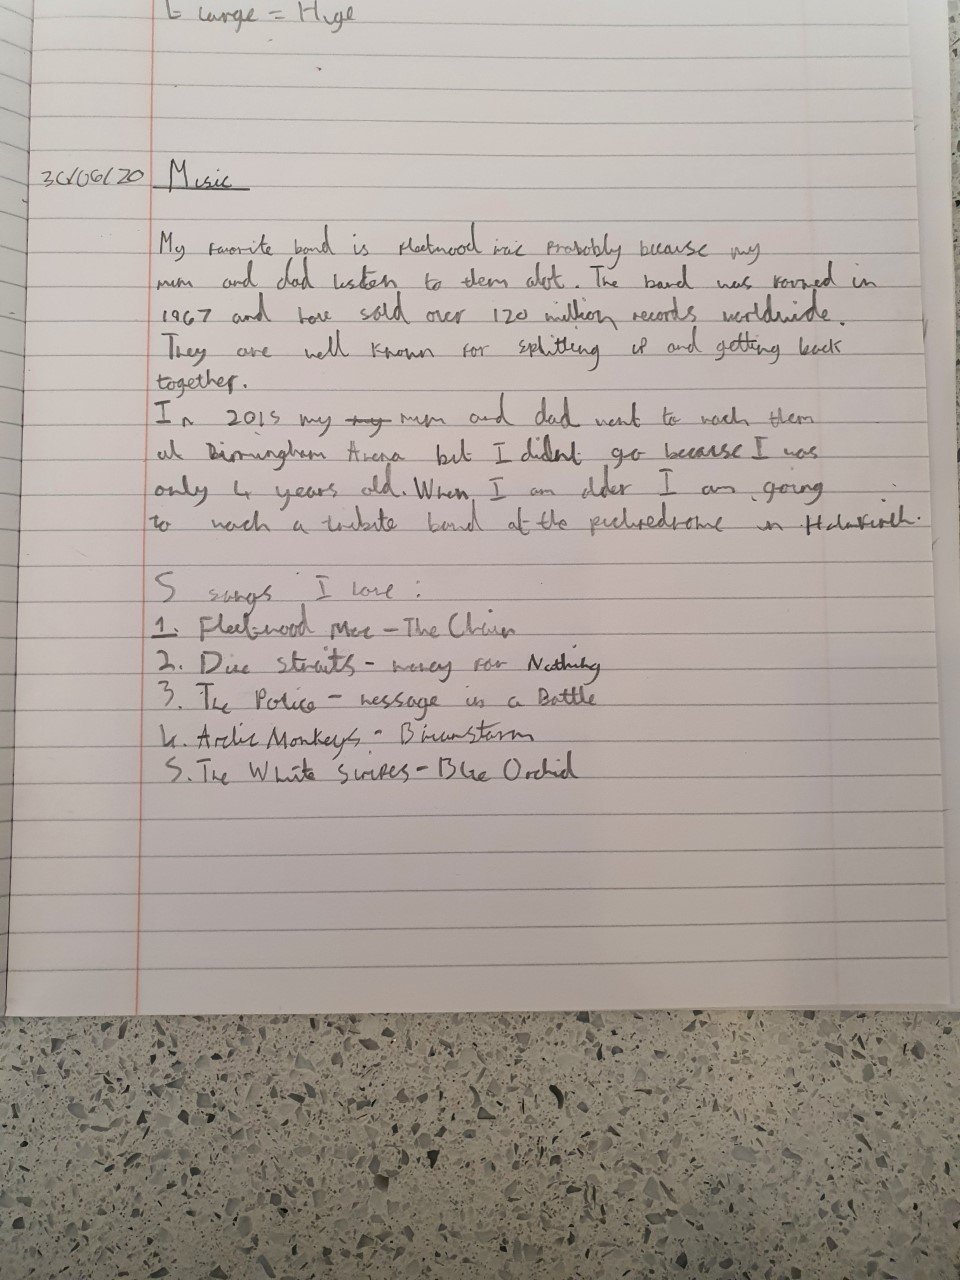 L Large = Huge
30/06/20 Music
My favorite band is Fleetwood mac Probably because my
mum and dad listen to them alot. The band was formed in
1967 and have sold over 120 million records worldwide.
They are well known for splitting up and getting back
together.
In 2015 my my mum and dad went to wach them
at Birmingham Arena but I didnt go because I was
only 4 years old. When I am older I am going
to wach a tribute band at the picturedrome in Holmfirth.
5 songs I love :
1. Fleetwood Mac - The Chain
2. Dire Straits - money For Nothing
3. The Police - message in a Bottle
4. Arctic Monkeys - Brianstorm
5. The White Stripes - Blue Orchid